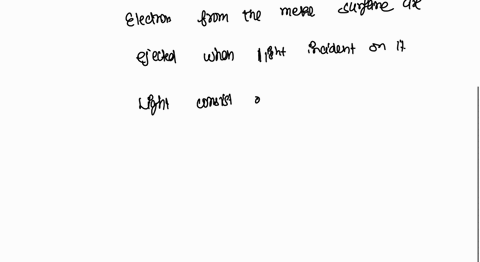 Electron from the metal surface are
ejected when light incident on it
Light consist o